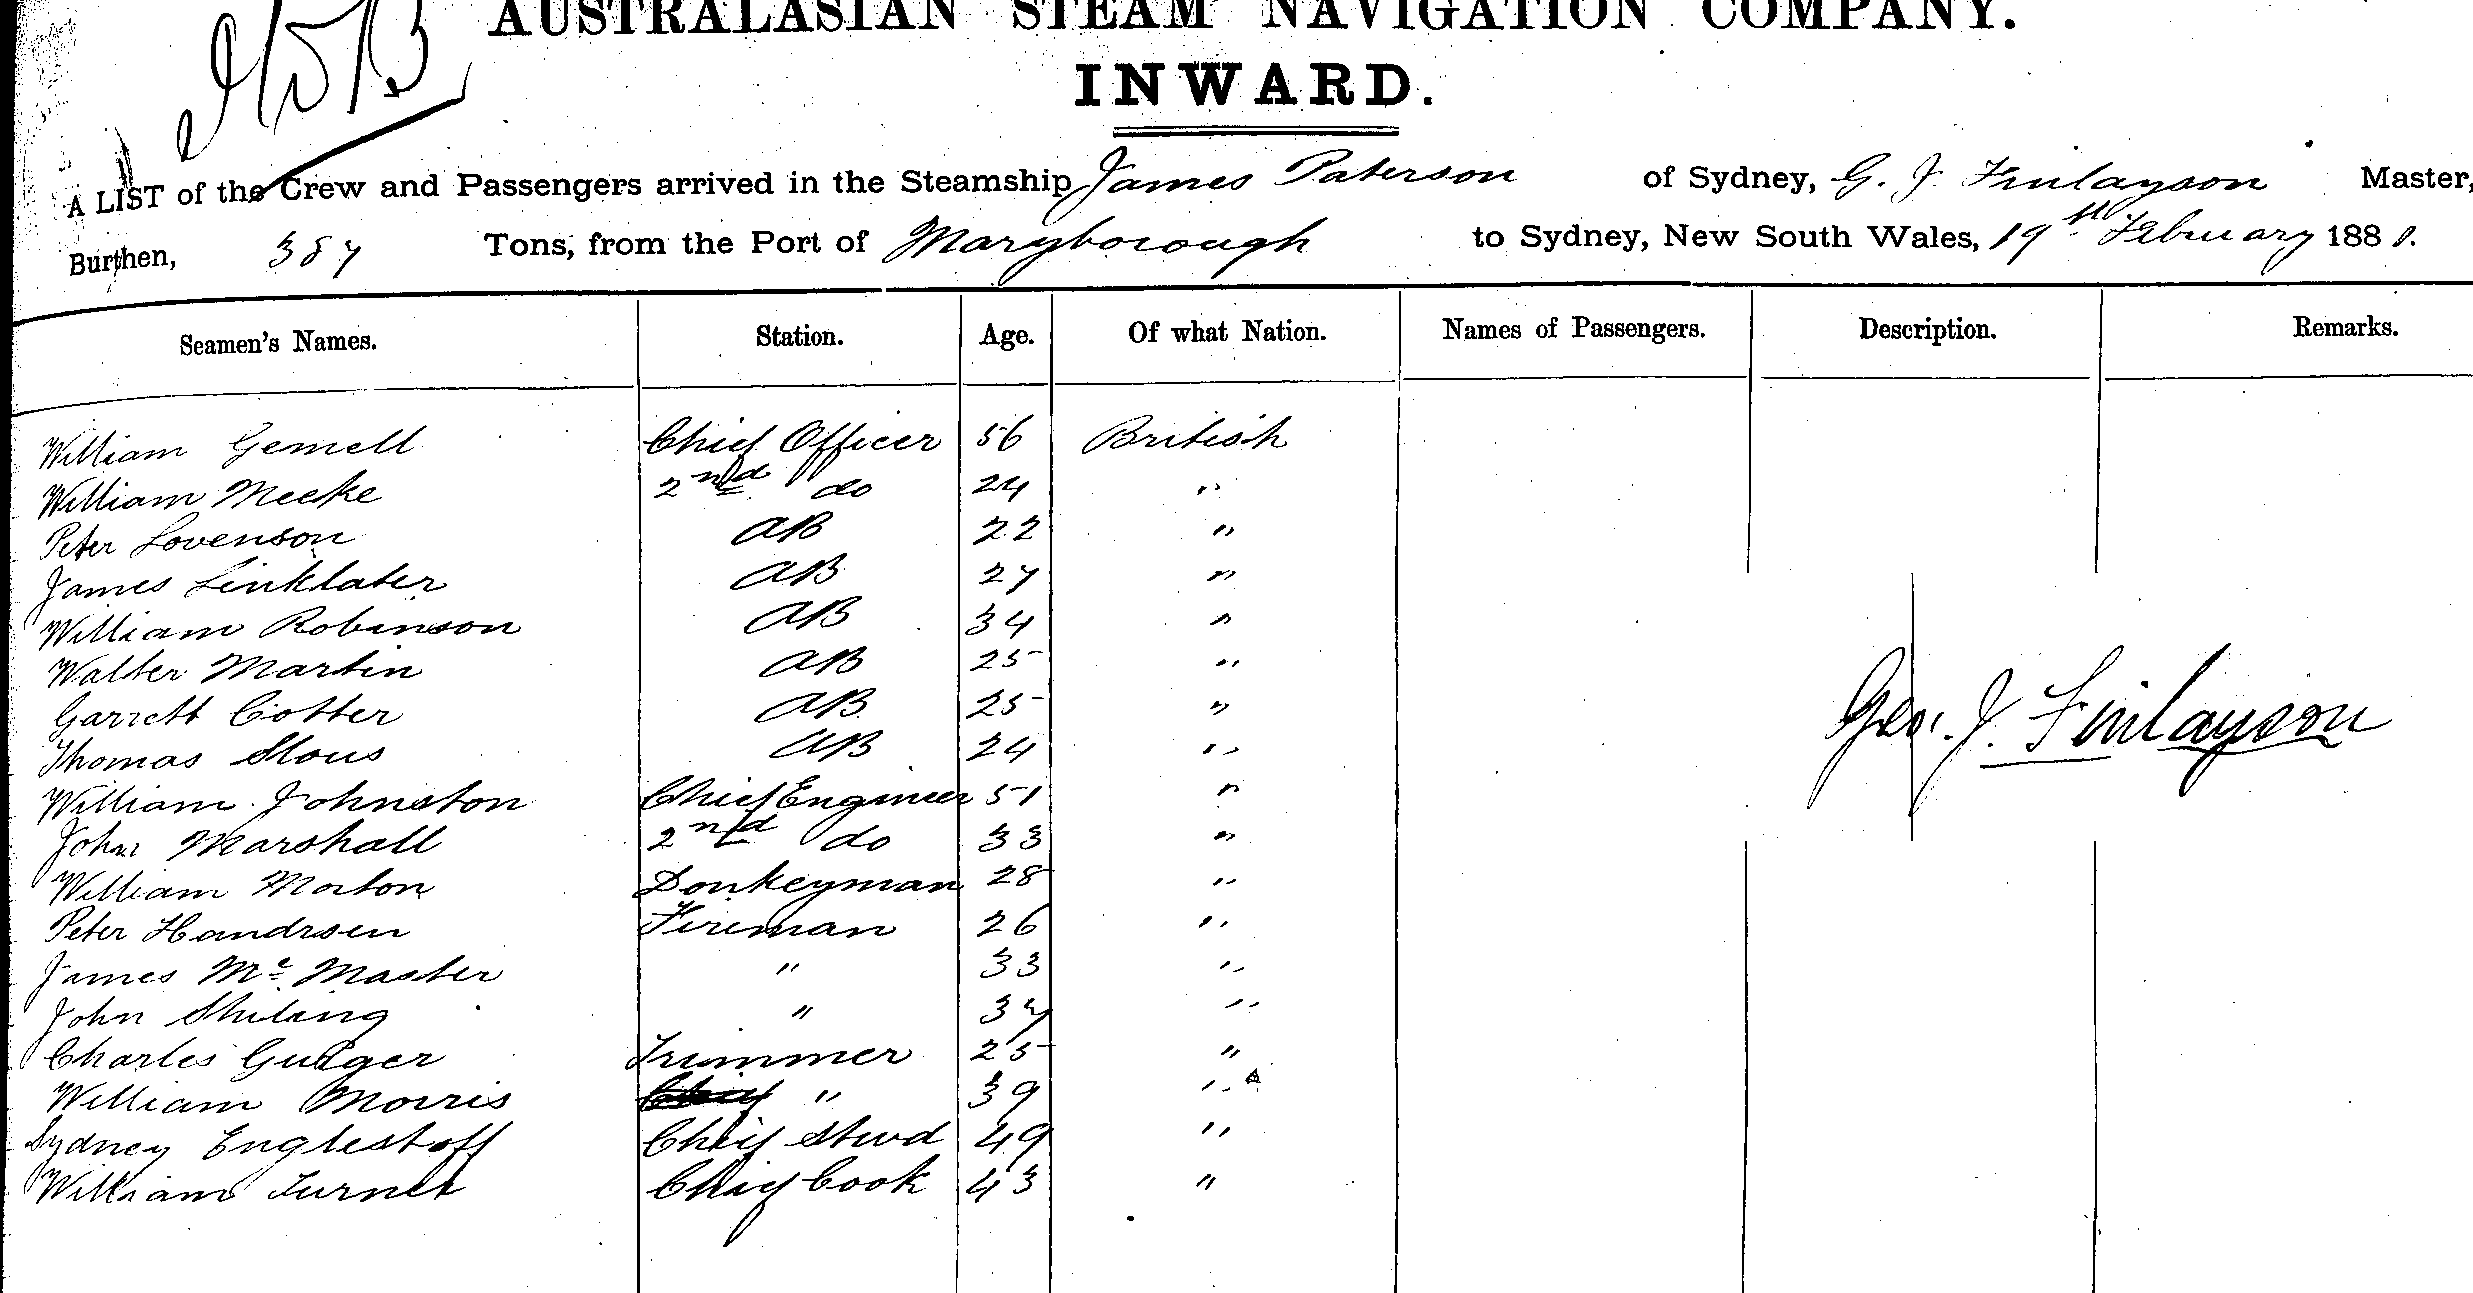 AUSTRALASIAN STEAM NAVIGATION COMPANY.
INWARD.
A LIST of the Crew and Passengers arrived in the Steamship James Paterson of Sydney, G. J. Finlayson Master,
Burthen, 387 Tons, from the Port of Maryborough to Sydney, New South Wales, 19th February 1881.
Seamen's Names. Station. Age. Of what Nation. Names of Passengers. Description. Remarks.
William Gemell Chief Officer 56 British
William Meeke 2nd do 24 "
Peter Lovenson AB 22 "
James Linklater AB 27 "
William Robinson AB 34 "
Walter Martin AB 25 "
Garrett Cotter AB 25 "
Thomas AB 24 "
Geo. J. Finlayson
William Johnston Chief Engineer 51 "
John Marshall 2nd do 33 "
William Morton Donkeyman 28 "
Peter Handrsen Fireman 26 "
James Mc Master " 33 "
John " 37 "
Charles Trimmer 25 "
William Morris " 39 "
Sydney Englestoff Chief Stwd 49 "
William Turner Chief Cook 43 "